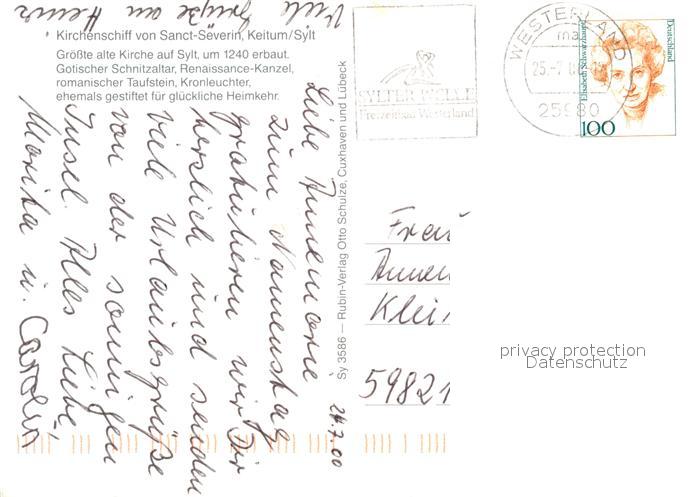 Viele Grüße an Heinz
Kirchenschiff von Sanct-Severin, Keitum/Sylt
Größte alte Kirche auf Sylt, um 1240 erbaut.
Gotischer Schnitzaltar, Renaissance-Kanzel,
romanischer Taufstein, Kronleuchter,
ehemals gestiftet für glückliche Heimkehr.
Liebe Annemarie,
zum Namenstag
gratulieren wir Dir
herzlich und senden
viele Urlaubsgrüße
von der sonnigen
Insel. Alles Liebe,
Marita u. Carolin
24.7.00
Sy 3586 — Rubin-Verlag Otto Schulze, Cuxhaven und Lübeck
SYLTER WELLE
Freizeitbad Westerland
WESTERLAND
ma
25.-7.
25980
Elisabeth Schwarzhaupt
Deutschland
100
Frau
Annem
Klei
59821
privacy protection
Datenschutz